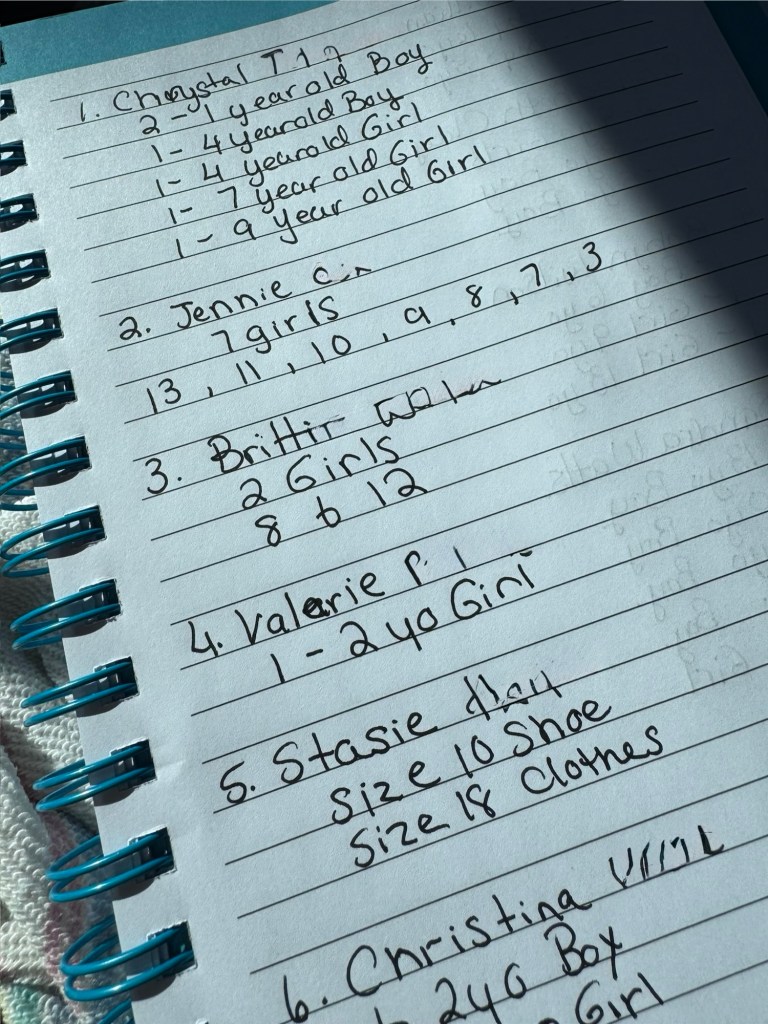 1. Chrystal T
2 - 1 year old Boy
1 - 4 year old Boy
1 - 4 year old Girl
1 - 7 year old Girl
1 - 9 year old Girl
2. Jennie
7 girls
13, 11, 10, 9, 8, 7, 3
3.
2 Girls
8 to 12
4. Valerie P.
1 - 2 yo Girl
5. Stasie
Size 10 Shoe
Size 18 Clothes
6. Christina
2 yo Boy
Girl